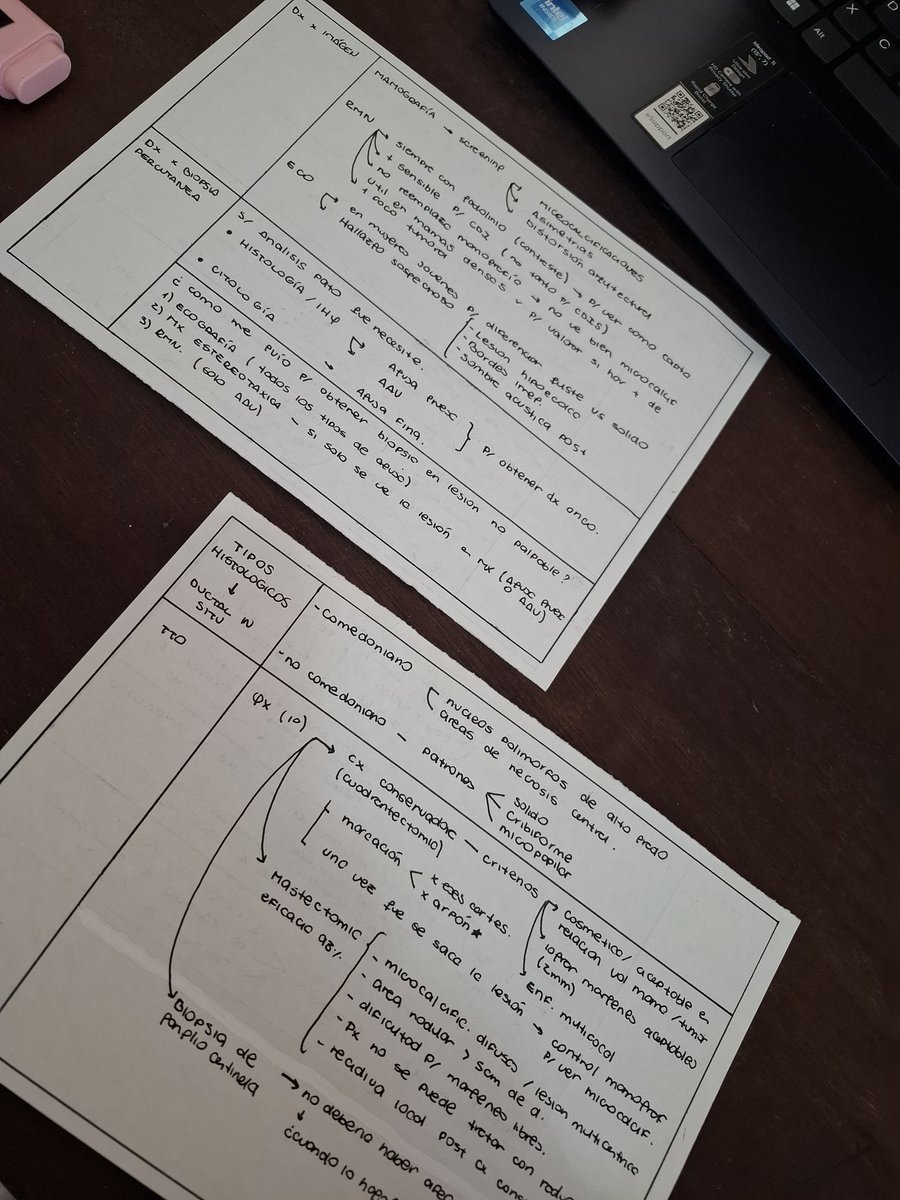 Dx x IMÁGEN
MAMOGRAFÍA → screening
MICROCALCIFICACIONES
ASIMETRIAS
DISTORSIÓN ARQUITECTURA
RMN
siempre con gadolinio (contraste) → p/ ver como capta
+ sensible p/ CDI (no tanto p/ CDIS)
no reemplaza mamografía → no ve bien microcalcif
util en mamas densas y p/ valorar si hay + de
1 foco tumoral
ECO
en mujeres jovenes p/ diferenciar quiste vs solido
Hallazgo sospechoso
- Lesión hipoecoica
- Bordes irreg.
- Sombra acustica post
Dx x BIOPSIA
PERCUTANEA
S/ Analisis pato que necesite.
• HISTOLOGÍA / IHQ
AGUJA GRUESA
AAV
• CITOLOGÍA → AGUJA FINA.
P/ obtener dx onco.
¿ como me guío p/ obtener biopsia en lesion no palpable?
1) ECOGRAFÍA (todos los tipos de aguja)
2) MX ESTEREOTAXICA - si solo se ve la lesión a MX (AGUJA GRUESA
O AAV)
3) RMN. (solo
AAV)
TIPOS
HISTOLOGICOS
↓
DUCTAL IN
SITU
- Comedoniano
nucleos polimorfos de alto grado
areas de necrosis central.
- no comedoniano - patrones
solido
cribiforme
micropapilar
TTO
QX (1º)
cx conservadora - criterios
(cuadrantectomia)
Cosmetica / aceptable e
relación vol mama / tumor
lograr margenes aceptables
(2mm)
Enf. multifocal
marcación
x ecos cortes.
x arpón*
una vez que se saca la lesión → control mamograf
p/ ver microcalcif.
Mastectomia
eficacia 98%
- microcalcific. difusas / lesión multicentrica
- area nodular > 5cm de d.
- dificultad p/ margenes libres.
- Px no se puede tratar con
- recidiva local post cx
BIOPSIA de
ganglio centinela
→ no deberia haber
↓
¿cuando lo
intel
Alt
X
C
D
eSupport